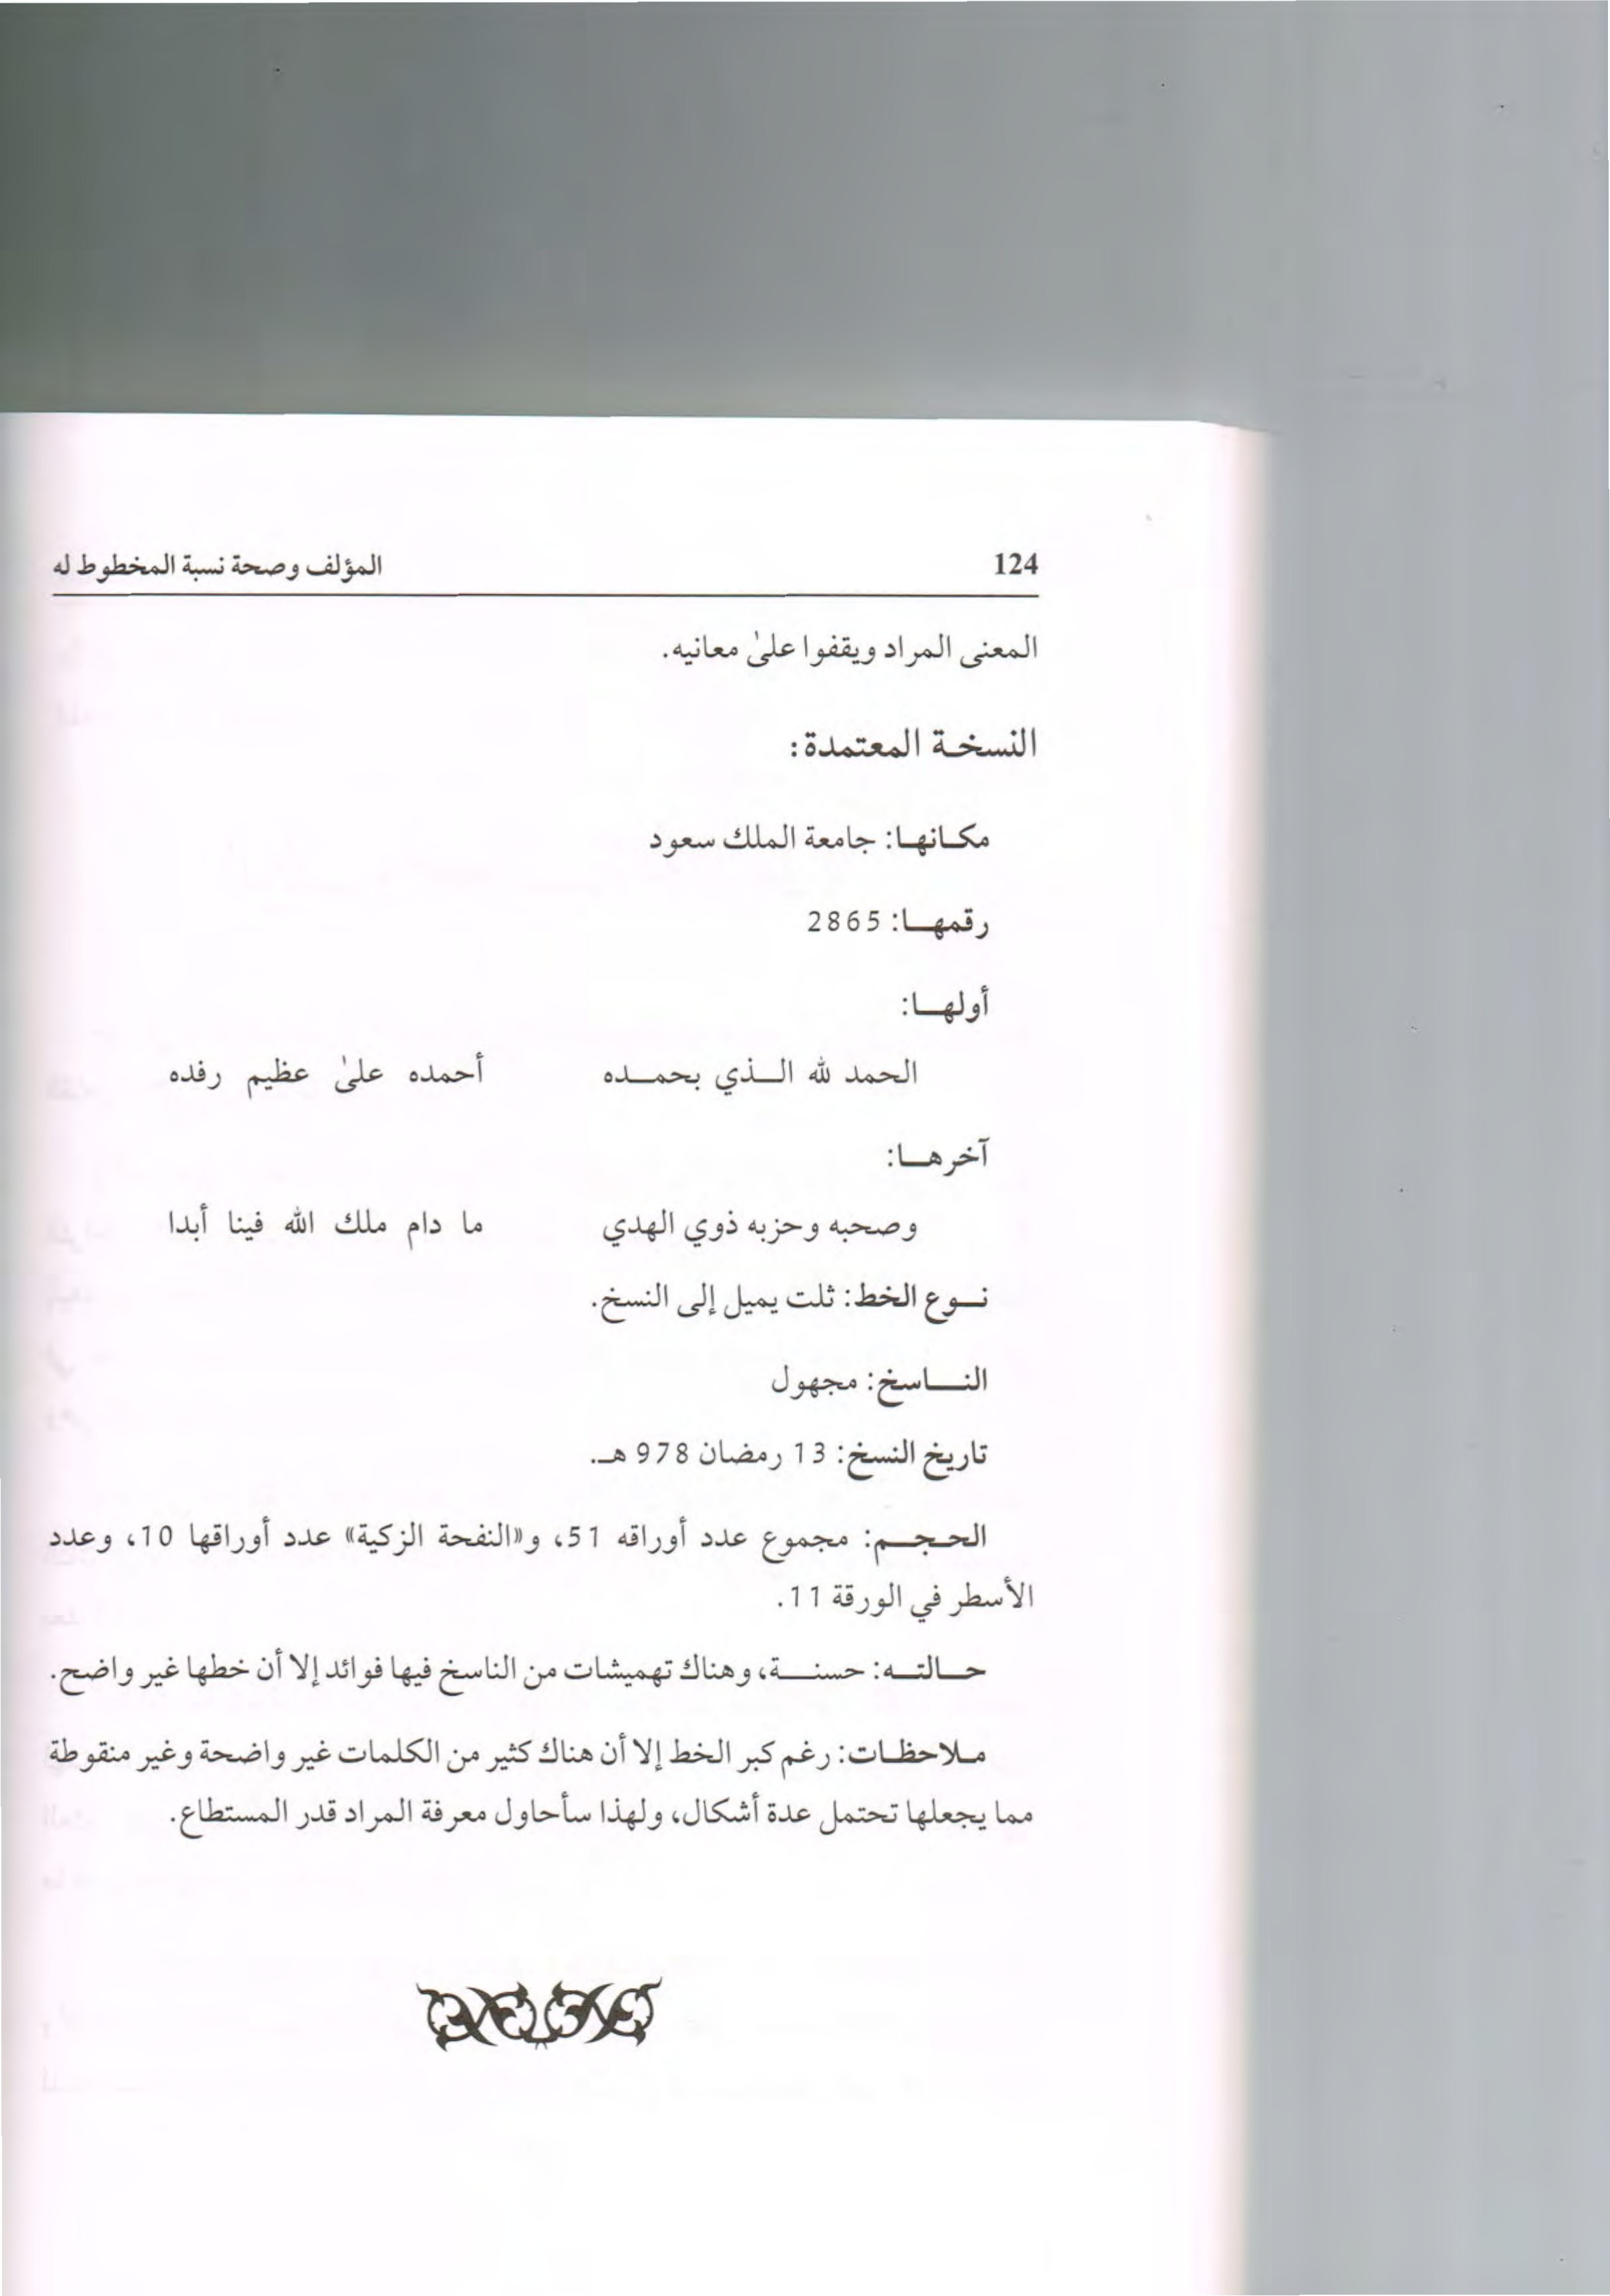 124 المؤلف وصحة نسبة المخطوط له
المعنى المراد ويقفوا علىٰ معانيه.
النسخة المعتمدة:
مكانها: جامعة الملك سعود
رقمها: 2865
أولها:
الحمد لله الذي بحمده أحمده علىٰ عظيم رفده
آخرها:
وصحبه وحزبه ذوي الهدي ما دام ملك الله فينا أبدا
نوع الخط: ثلت يميل إلى النسخ.
الناسخ: مجهول
تاريخ النسخ: 13 رمضان 978 هـ.
الحجم: مجموع عدد أوراقه 51، و«النفحة الزكية» عدد أوراقها 10، وعدد
الأسطر في الورقة 11.
حالته: حسنة، وهناك تهميشات من الناسخ فيها فوائد إلا أن خطها غير واضح.
ملاحظات: رغم كبر الخط إلا أن هناك كثير من الكلمات غير واضحة وغير منقوطة
مما يجعلها تحتمل عدة أشكال، ولهذا سأحاول معرفة المراد قدر المستطاع.